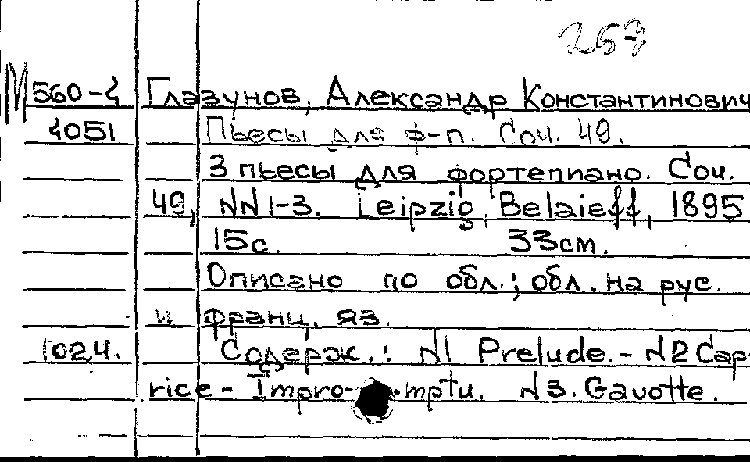 257
М 560-1 Глазунов, Александр Константинович
1051 Пьесы для ф-п. Соч. 49.
3 пьесы для фортепиано. Соч.
49, NN1-3. Leipzig, Belaieff, 1895
15с. 33см.
Описано по обл.; обл. на рус.
и франц. яз.
1024. Содерж.: N1 Prelude. - N2 Cap-
rice - Impro-mptu. N3. Gavotte.